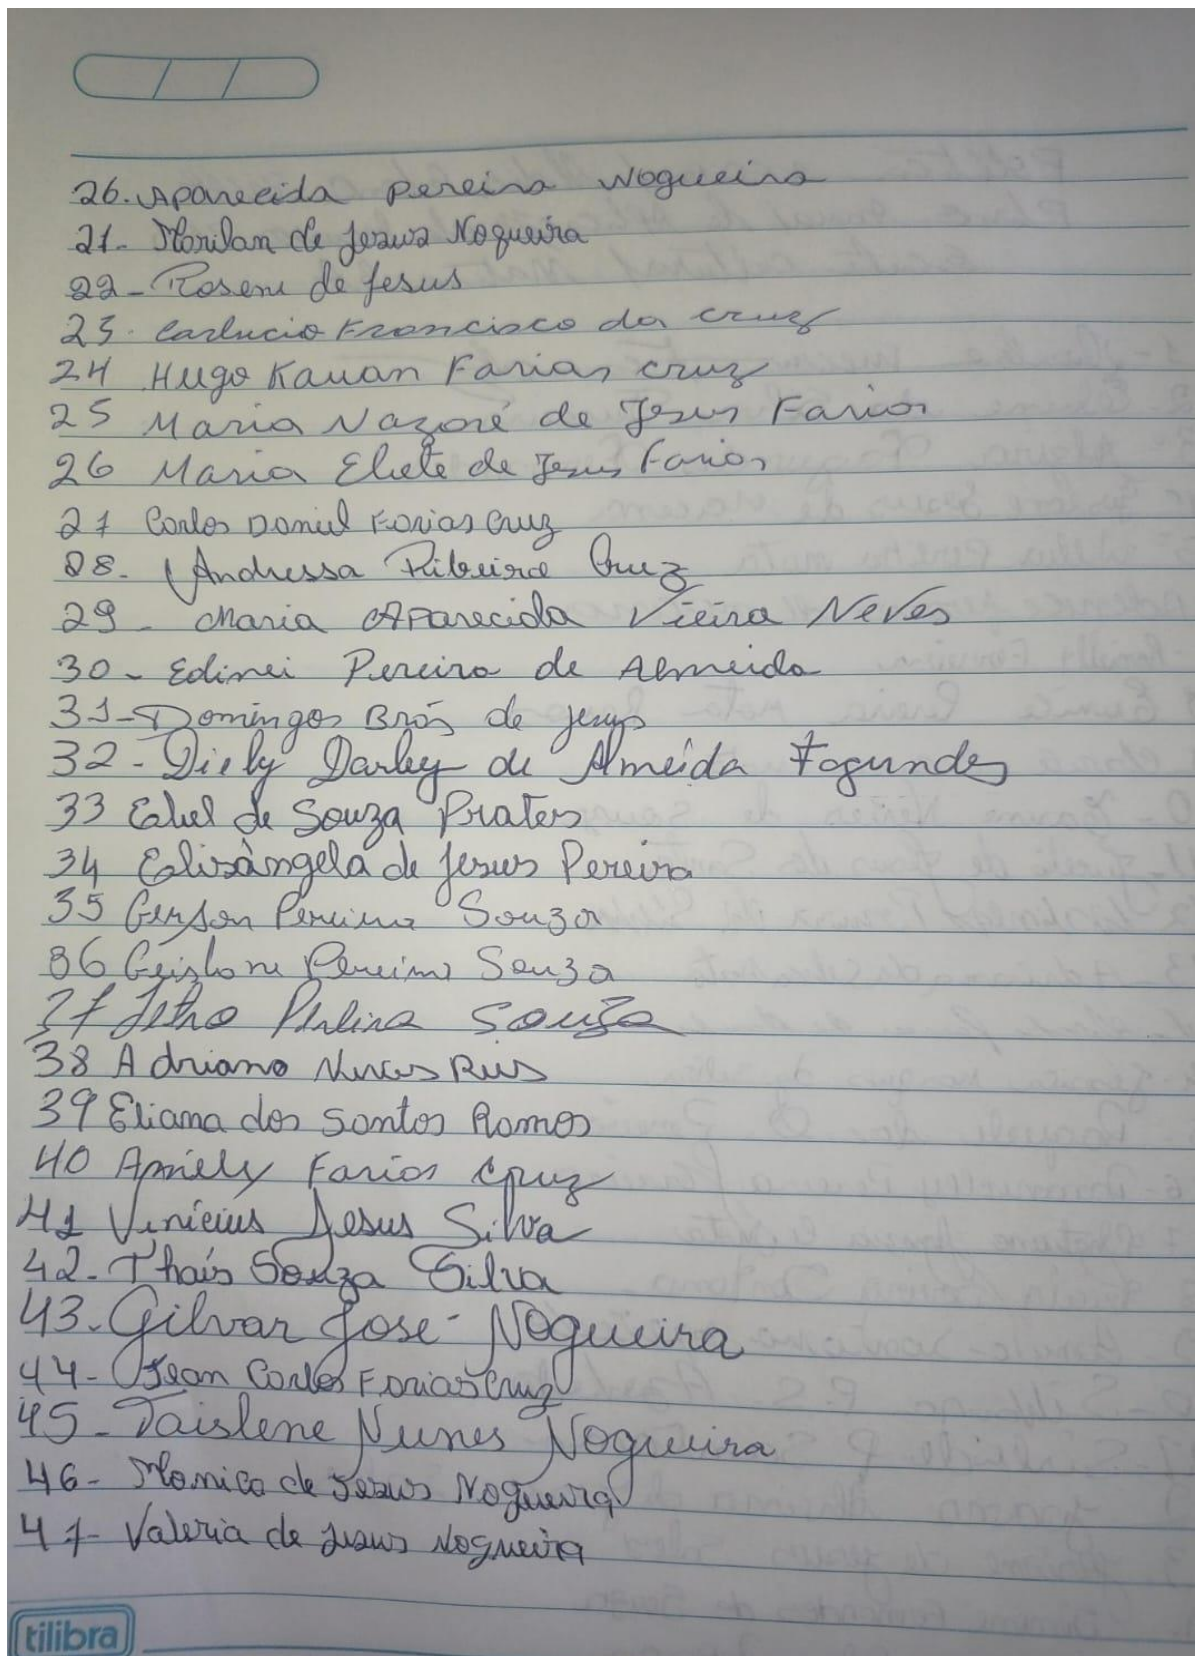 26. Aparecida Pereira Nogueira
21- Marilan de Jesus Nogueira
22- Roseni de Jesus
23. Carlucio Francisco da Cruz
24 Hugo Kauan Farias Cruz
25 Maria Nazaré de Jesus Farias
26 Maria Elizete de Jesus Farias
27 Carlos Daniel Farias Cruz
28. Andressa Ribeiro Cruz
29- Maria Aparecida Vieira Neves
30- Edinei Pereira de Almeida
31- Domingos Brás de Jesus
32- Diely Darley de Almeida Fagundes
33 de Souza Prates
34 Elisângela de Jesus Pereira
35 Gerson Pereira Souza
36 Pereira Souza
37 Jetro Pereira Souza
38 Adriano Nunes Reis
39 Eliana dos Santos Ramos
40 Farias Cruz
41 Vinicius Jesus Silva
42- Thais Souza Silva
43. Gilvar José Nogueira
44- Jean Carlos Farias Cruz
45- Taislene Nunes Nogueira
46- Monica de Jesus Nogueira
47- Valeria de Jesus Nogueira
tilibra